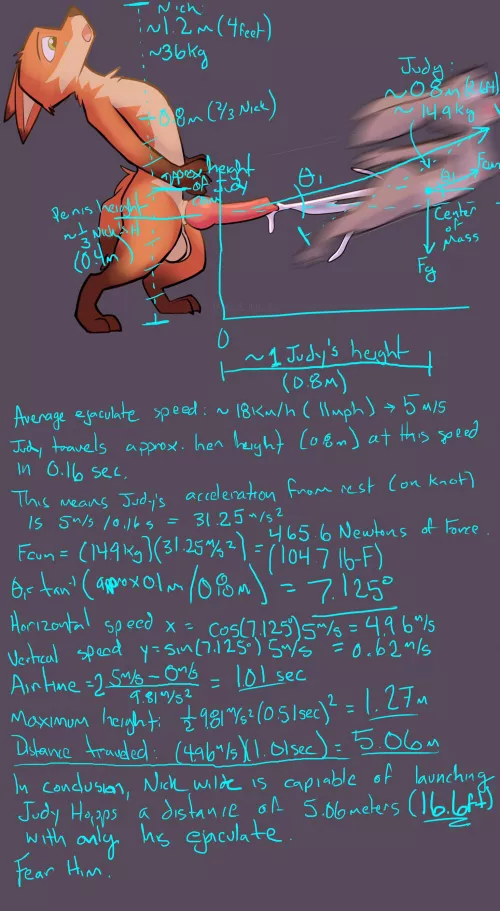 Nick:
~1.2m (4feet)
~36kg
0.8m (2/3 Nick)
Judy:
~0.8m
~14.9kg
Approx height
of Judy
Cum
θ1
θ1
Fcum
Center
of
Mass
Fg
Penis height
~1/3 Nick's H
(0.4m)
0
~1 Judy's height
(0.8m)
Average ejaculate speed: ~18Km/h (11mph) → 5m/s
Judy travels approx. her height (0.8m) at this speed
in 0.16 sec.
This means Judy's acceleration from rest (on knot)
is 5m/s /0.16s = 31.25m/s²
Fcum = (14.9kg)(31.25m/s²) = 465.6 Newtons of Force.
(104.7 lb-F)
θ1 = tan⁻¹(approx 0.1m/0.8m) = 7.125°
Horizontal speed x = cos(7.125°)5m/s = 4.96m/s
Vertical speed y = sin(7.125°)5m/s = 0.62m/s
Airtime = 2 5m/s - 0m/s / 9.81m/s² = 1.01 sec
Maximum height: 1/2 9.81m/s²(0.51sec)² = 1.27m
Distance traveled: (4.96m/s)(1.01sec) = 5.06m
In conclusion, Nick wilde is capiable of launching
Judy Hopps a distance of 5.06meters (16.6ft)
with only his ejaculate.
Fear Him.